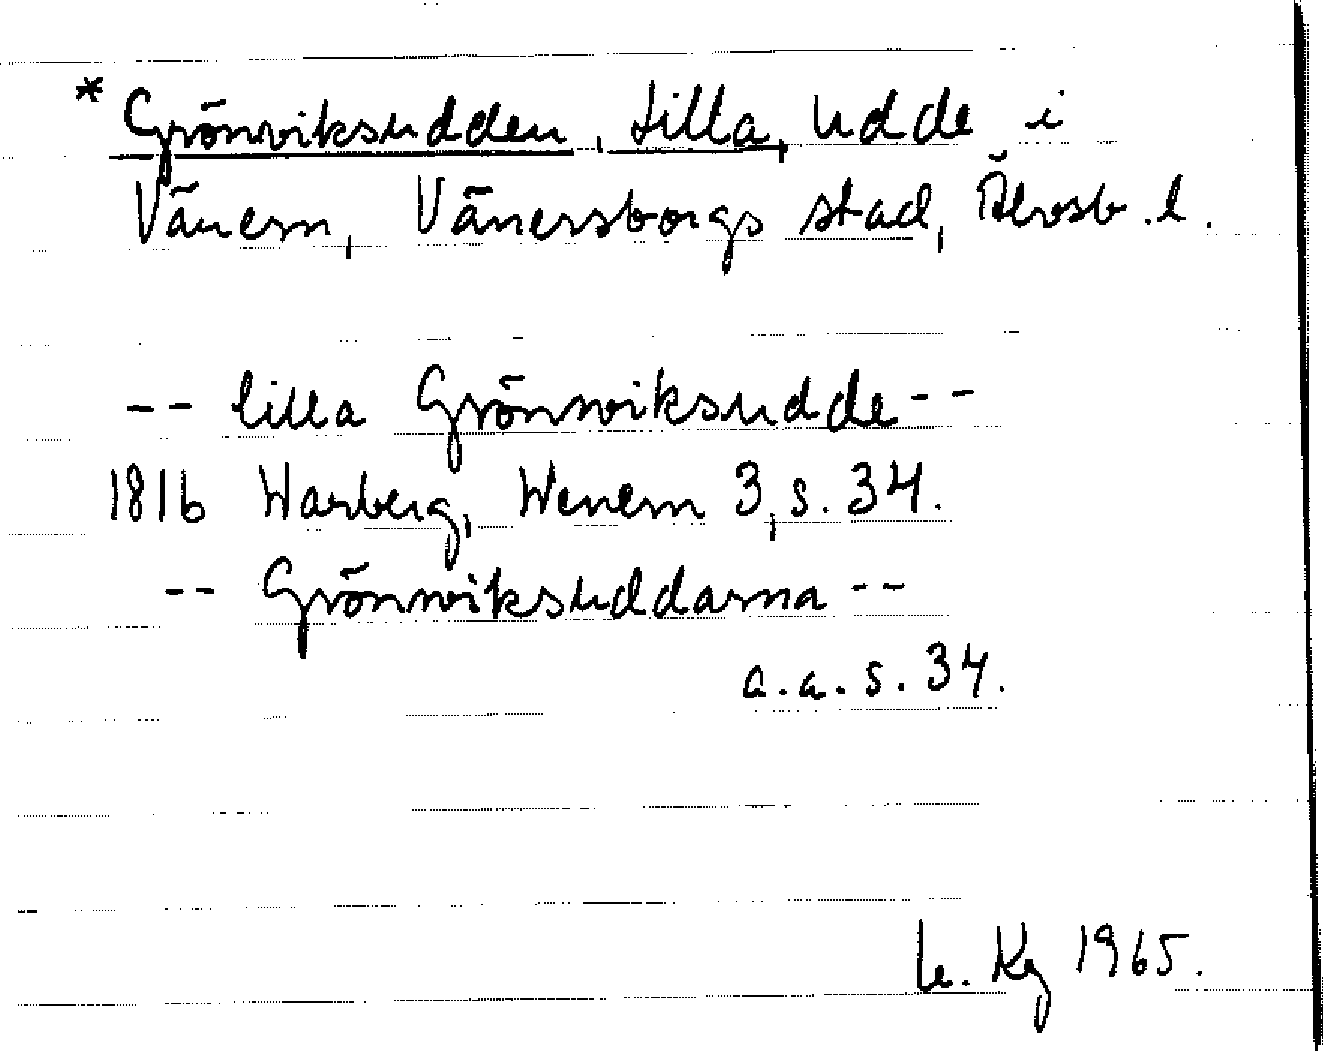 * Grönviksudden, Lilla, udde i
Vänern, Vänersborgs stad, Älvsb. l.
-- lilla Grönnviksudde --
1816 Warberg, Wenern 3, s. 34.
-- Grönnviksuddarna --
a.a. s. 34.
Le. Kg 1965.